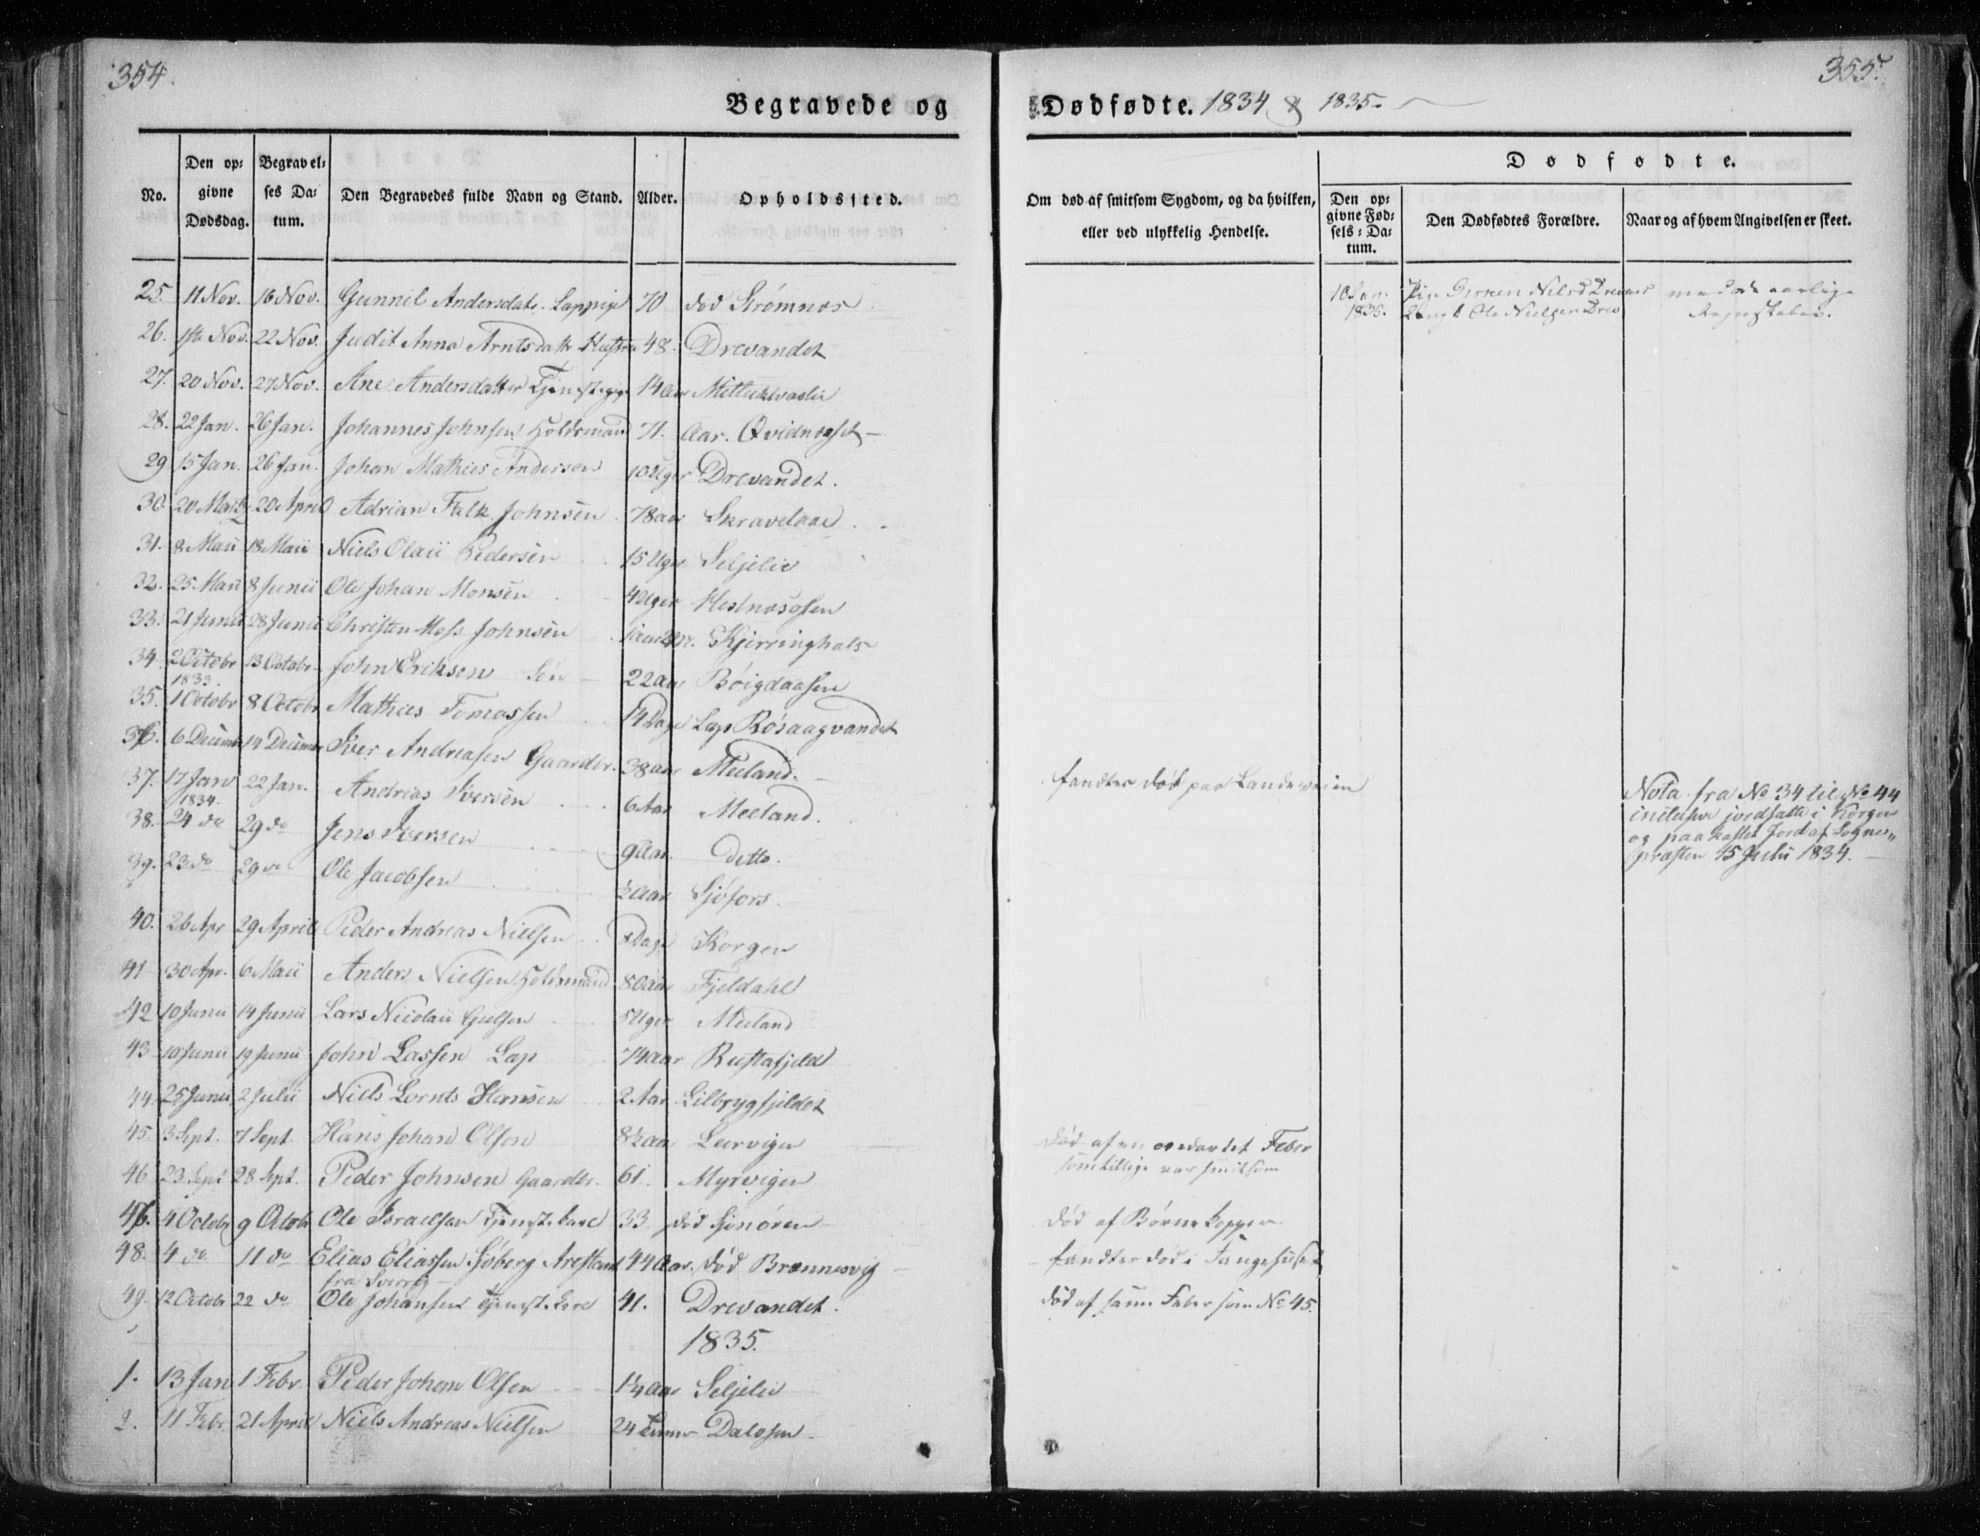 354.
355.
Begravede og
Dødfødte. 1834 & 1835.
No.
Den op-
givne
Dødsdag.
Begravel-
ses Da-
tum.
Den Begravedes fulde Navn og Stand.
Alder.
Opholdssted.
Om død af smitsom Sygdom, og da hvilken,
eller ved ulykkelig Hendelse.
Dødfødte.
Den op-
givne Fød-
sels-Da-
tum.
Den Dødfødtes Forældre.
Naar og af hvem Angivelsen er skeet.
25. 11 Nov. 16 Nov. Gunnil Andersdatr. Lappige 70 død Strømnæs
26. Nov. 22 Nov. Judit Anna Arntsdattr 48. Drevandet
27. 20 Nov. 27 Nov. Ane Andersdatter 14 Aar
28. 22 Jan. 26 Jan. Johannes Johnsen Holdsmand 71. Aar. Qvidnæset
29 15 Jan. 26 Jan. Johan Mathies Andersen 10 Uger Drevandet.
30. 20 Martz 20 April Adrian Falk Johnsen 78 aar Skravelaae
31. 8 Maii 18 Maii Niels Olaii Pedersen 15 Uger Seljelie
32. 25 Maii 8 Junii Ole Johan Monsen 4 Uger Hestnæsosen
33. 21 Junii 28 Junii Christen Moss Johnsen Kjerringhals
34. 2 Octobr 13 Octobr John Eriksen Søn 22 aar Bøigdaasen
1833.
35. 1 Octobr 8 Octobr Mathies Tomassen 14 Dage Lap Røsaagvandet
36. 6 Decembr 14 Decembr Iver Andreasen Gaardbr. 38 aar Meeland.
37. 17 Jan 22 Jan. Andreas Iversen 6 Aar Meeland.
1834.
38. 24 do 29 do Jens Iversen 9 Aar. detto.
39. 23 do 29 do Ole Jacobsen ½ Aar Sjøfors.
40. 26 Apr 29 April Peder Andreas Nielsen Dage Korgen
41 30 Apr. 6 Maii Anders Nielsen Holdsmand 80 Aar Fjeldahl
42 10 Junii 14 Junii Lars Nicolaii 5 Uger Meeland
43 10 Junii 19 Junii John Lassen Lap 74 aar Rustafjeld
44 25 Junii 2 Julii Niels Lornts Hansen 2 Aar Lilbrygfjeldet
45. 3 Sept. 7 Sept. Hans Johan Olsen 8½ aar Leervigen
46 23 Sept 28 Sept. Peder Johnsen Gaardbr. 61. Myrvigen
47. 4 Octobr 9 Octobr Ole Israelsen Tjenstekarl 33. død Sjonøren
48. 4 do 11 do Elias Eliassen Sjøberg Arestant 44 Aar. død Brønnesvig
fra Sverrig
49. 12 Octobr 22 do Ole Johansen Tjenstekarl 41. Drevandet.
1835.
1. 13 Jan 1 Febr. Peder Johan Olsen 1¼ aar Seljelie
2. 11 Febr. 21 April Niels Andreas Nielsen 24 Timer Dalosen
10 Jan.
1835.
Nielsd
Ole Nielsen Drev
fandtes død paa Landeveien
Nota fra No 34 til No 44
inclusive jordsatte i Korgen
og paakastet Jord af Sogne-
præsten 15 Julii 1834.
død af en ondartet Feber
som tillige var smitsom
død af Børnekopper
fandtes død i Fangehuset
død af samme Feber som No 45.